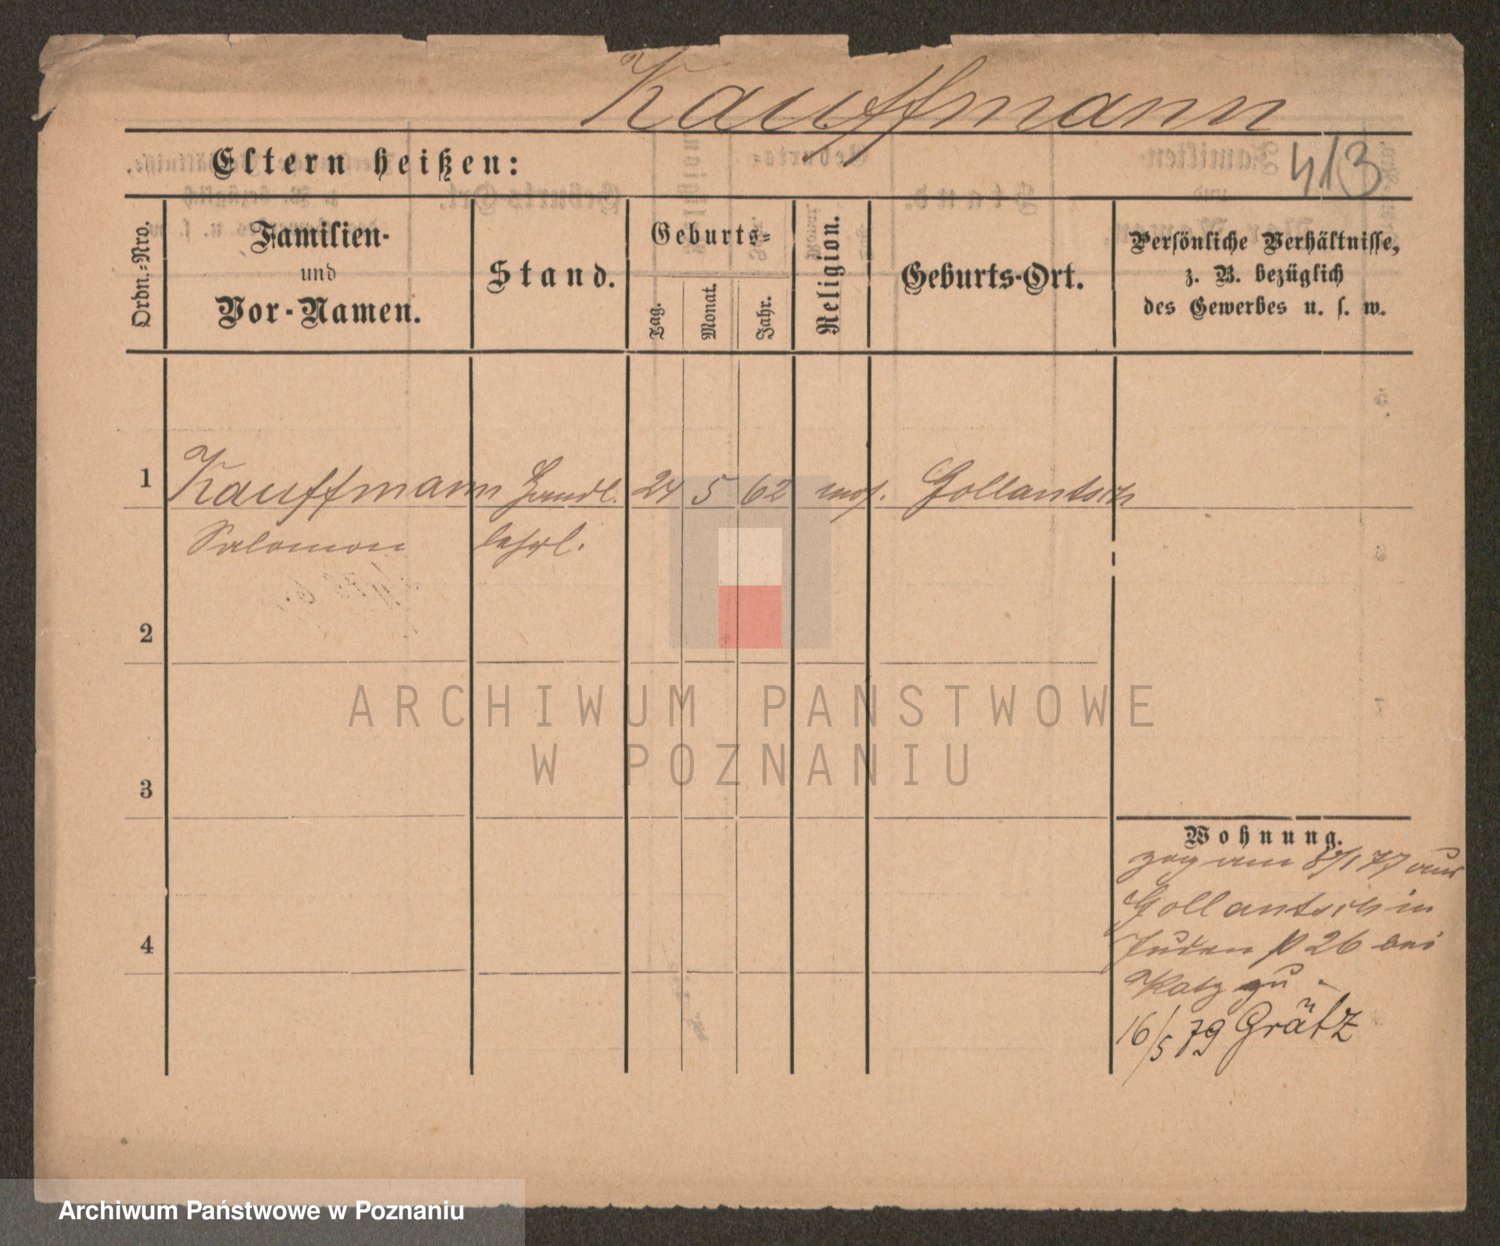 Kauffmann
413
Eltern heißen:
Ordn.-Nro.
Familien-
und
Vor-Namen.
Stand.
Geburts-
Tag.
Monat.
Jahr.
Religion.
Geburts-Ort.
Persönliche Verhältnisse,
z. B. bezüglich
des Gewerbes u. s. w.
1 Kauffmann Handl. 24 5 62 mos. Gollantsch
Salomon lehrl.
2
3
4
Wohnung.
zog am 8/1 77 aus
Gollantsch in
Juden 26 bei
Katz zu
16/5 79 Grätz
ARCHIWUM PAŃSTWOWE
W POZNANIU
Archiwum Państwowe w Poznaniu